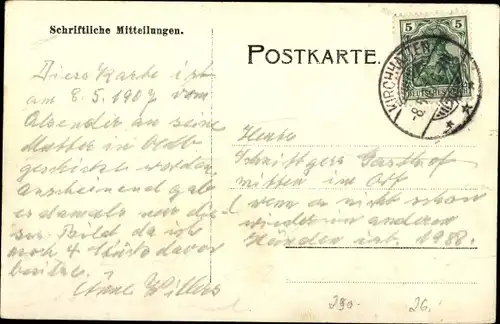 Schriftliche Mitteilungen.
POSTKARTE.
5 5
DEUTSCHES REICH
KIRCHHATTEN
Diese Karte ist
am 8.5.1907 vom
Absender an seine
Mutter in
geschickt worden,
anscheinend gab
es damals nur die-
ses Bild da ich
noch 4 Stück davon
besitze.
Anne Willers
Heute
Schnittgers Gasthof
mitten im Ort
(wenn er nicht schon
wieder in anderen
Händen ist. 1988.
290. 26.